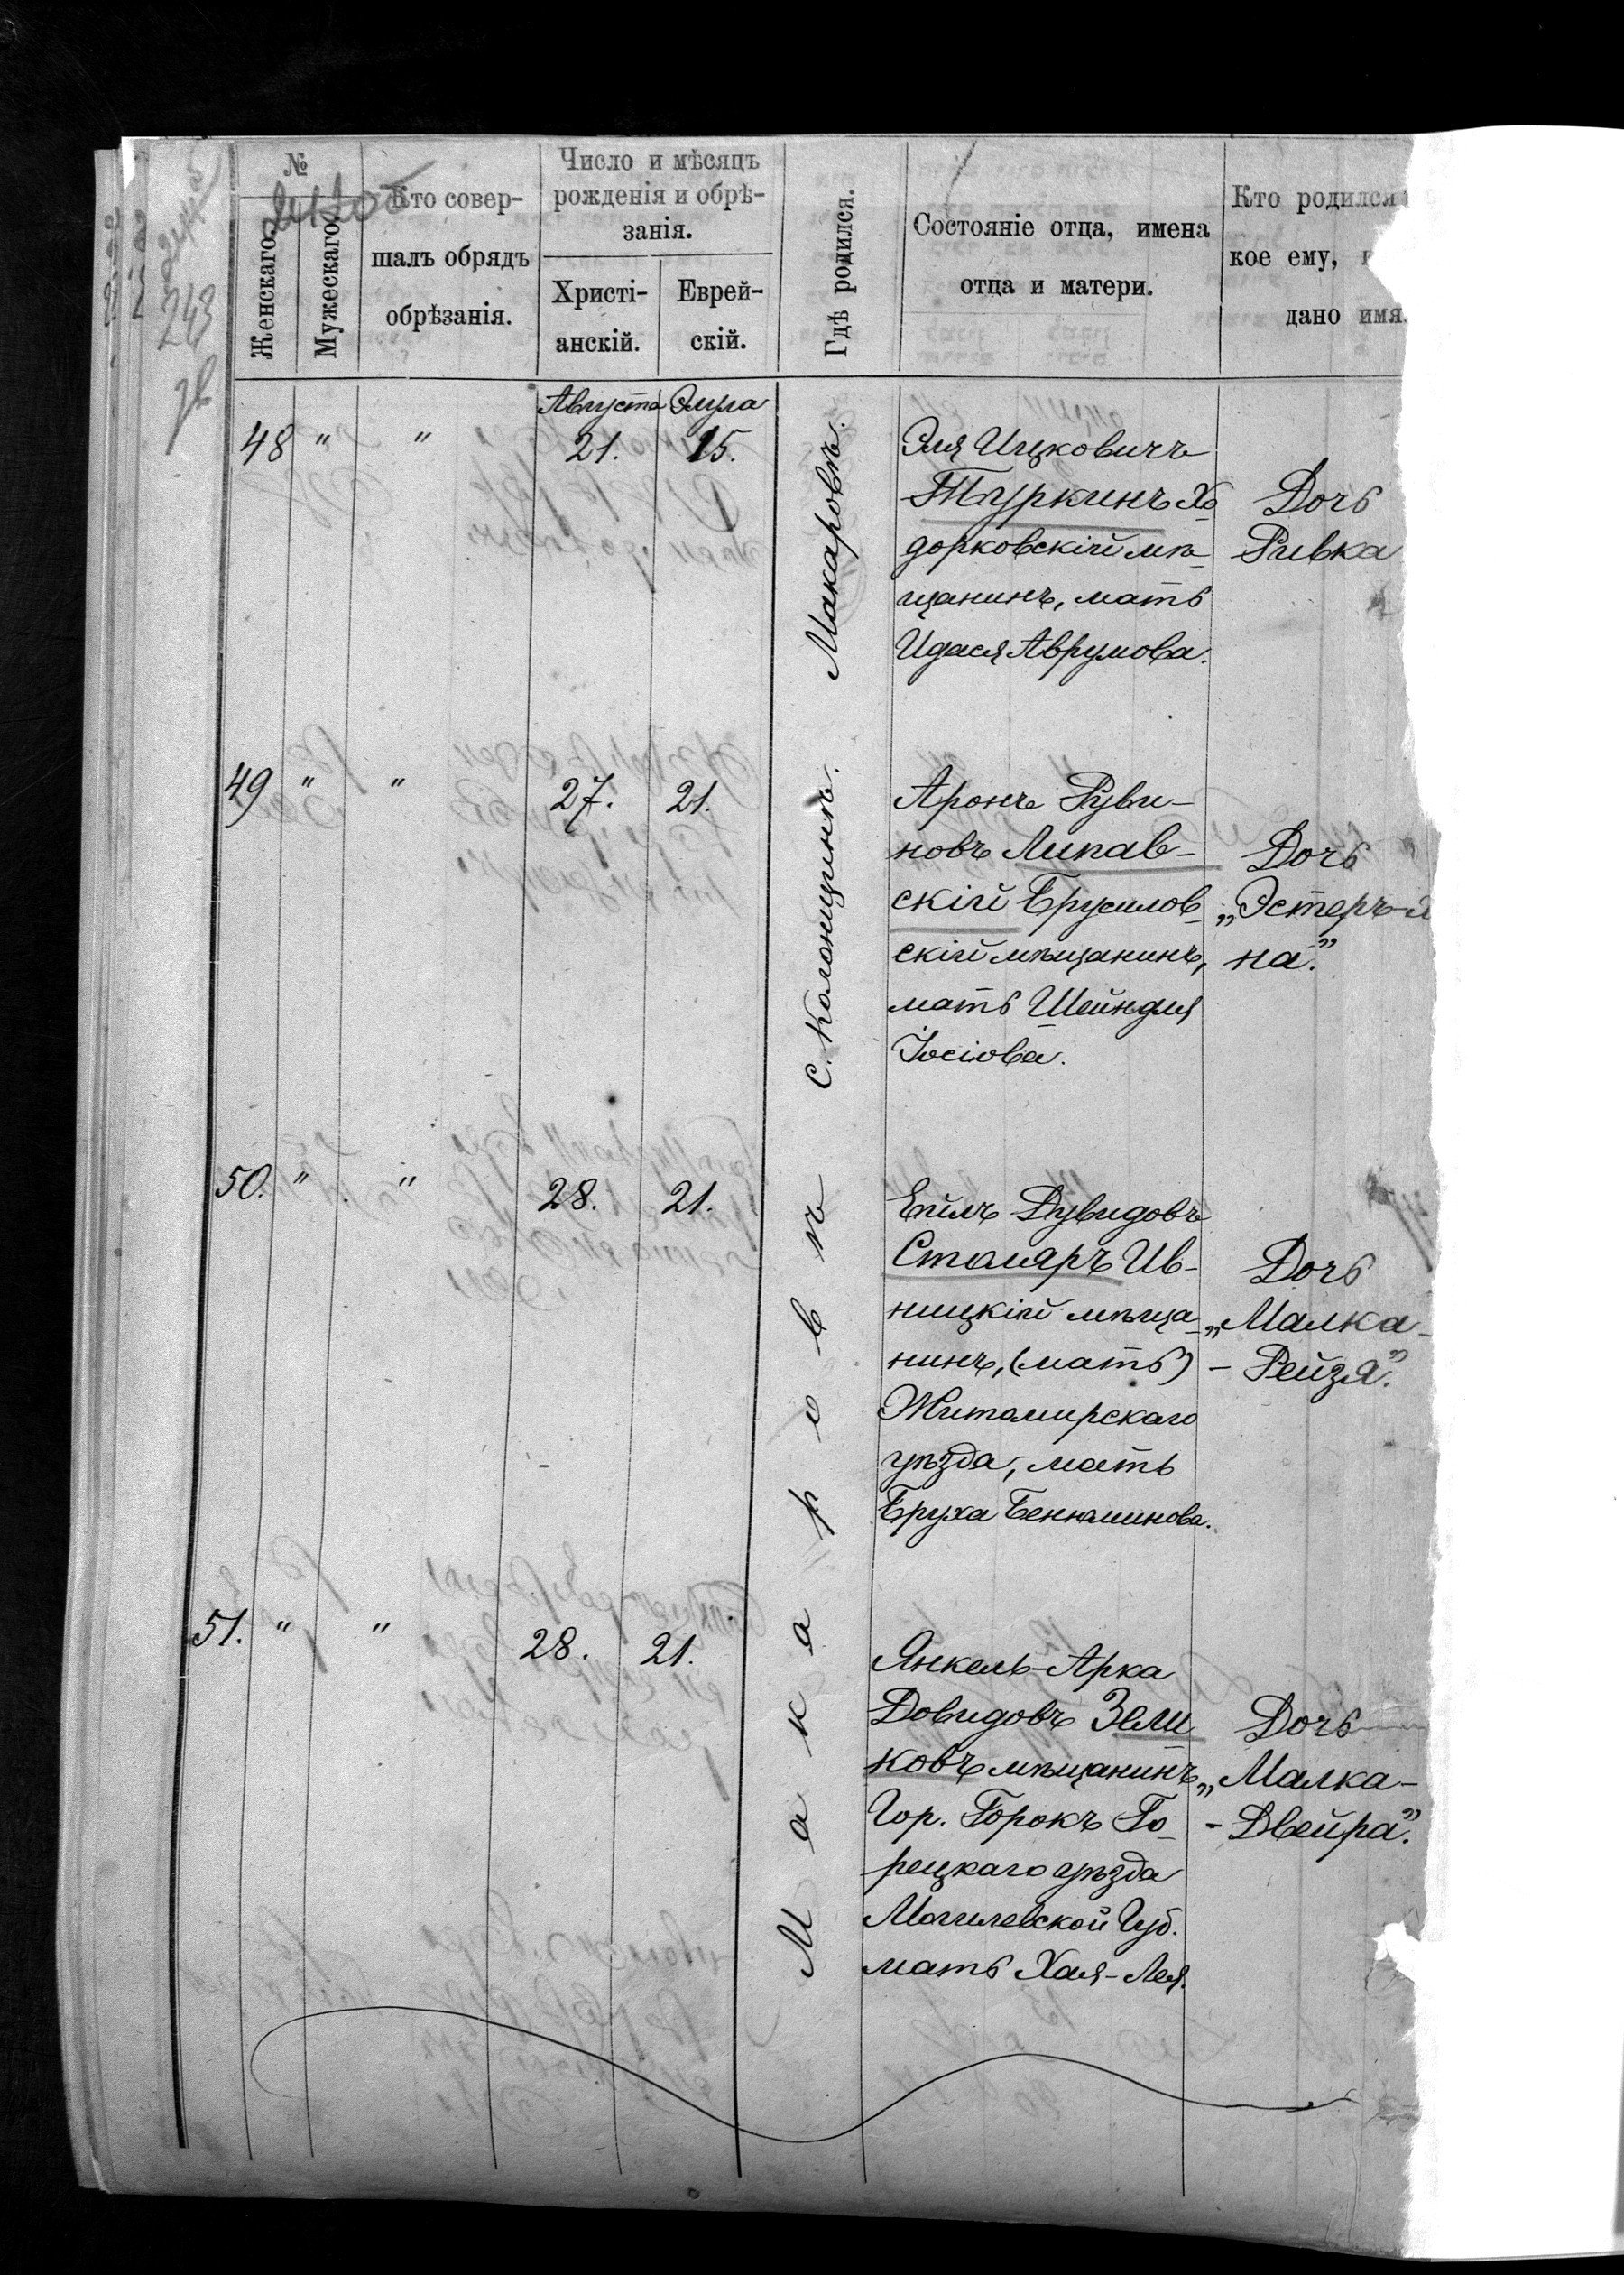 №
Женскаго.
Мужескаго.
Кто совер-
шалъ обрядъ
обрѣзанія.
Число и мѣсяцъ
рожденія и обрѣ-
занія.
Христі-
анскій.
Еврей-
скій.
Гдѣ родился.
Состояніе отца, имена
отца и матери.
Кто родился
кое ему,
дано имя.
243
Августа Элула
48 " " 21. 15.
Макаровъ.
Эля Ицковичъ
Туркинъ Хо
дорковскій мѣ-
щанинъ, мать
Идася Аврумова.
Дочь
Ривка
49 " " 27. 21.
С. Колонщинъ.
Аронъ Руви-
новъ Липав-
скій Брусилов-
скій мѣщанинъ,
мать Шейндля
Іосіова.
Дочь
„Эстеръ-
на."
50. " " 28. 21.
Макаровъ
Ейлъ Дувидовъ
Столяръ Ив-
ницкій мѣща-
нинъ, (мать)
Житомирскаго
уѣзда, мать
Бруха Бенюминова.
Дочь
„Малка-
- Рейзя."
51. " " 28. 21.
Янкель-Арка
Довидовъ Зели
ковъ мѣщанинъ
Гор. Горокъ Го-
рецкаго уѣзда
Могилевской Губ.
мать Хая-Лея.
Дочь
„Малка-
- Двейра."